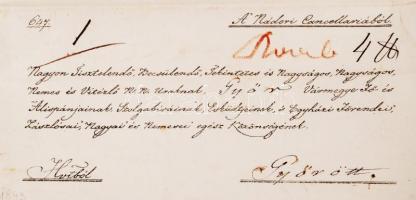 647.
A Nádori Cancelláriából.
1
4
Nagyon Tisztelendő, Becsülendő, Tekintetes és Nagyságos, Nagyságos,
Nemes és Vitézlő N. N. Uraknak, Győr Vármegye Fő és
Alispánjainak, Szolgabíráinak, Esküdtjeinek, s Egyházi Főrendei,
Zászlósai, Nagyai és Nemesei egész Közönségének.
Hivból
Győrött.